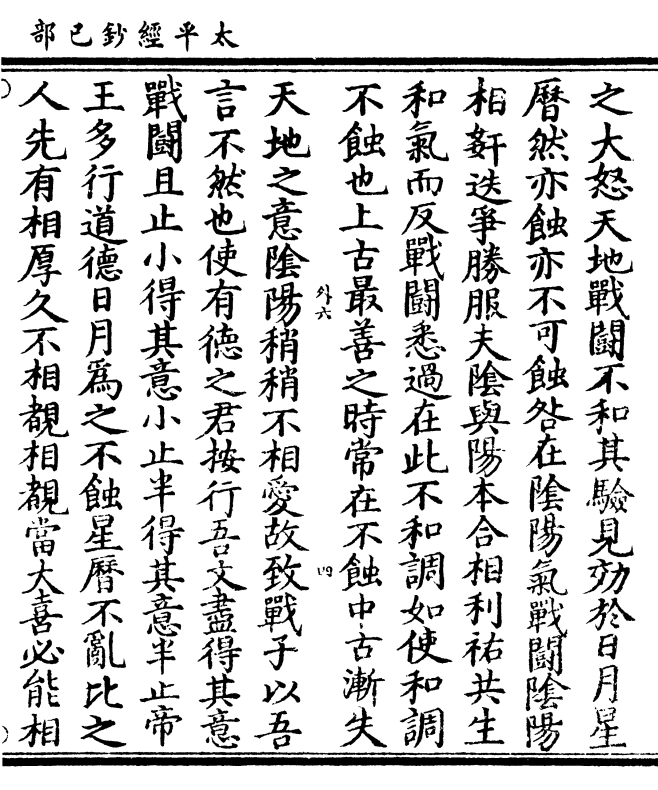 太平經鈔已部
之大怒天地戰鬪不和其驗見効於日月星
曆然亦蝕亦不可蝕咎在陰陽氣戰鬪陰陽
相姧迭爭勝服夫陰與陽本合相利祐共生
和氣而反戰鬪悉過在此不和調如使和調
不蝕也上古最善之時常在不蝕中古漸失
外六
四
天地之意陰陽稍稍不相愛故致戰子以吾
言不然也使有德之君按行吾文盡得其意
戰鬪且止小得其意小止半得其意半止帝
王多行道德日月為之不蝕星曆不亂比之
人先有相厚久不相覩相覩當大喜必能相